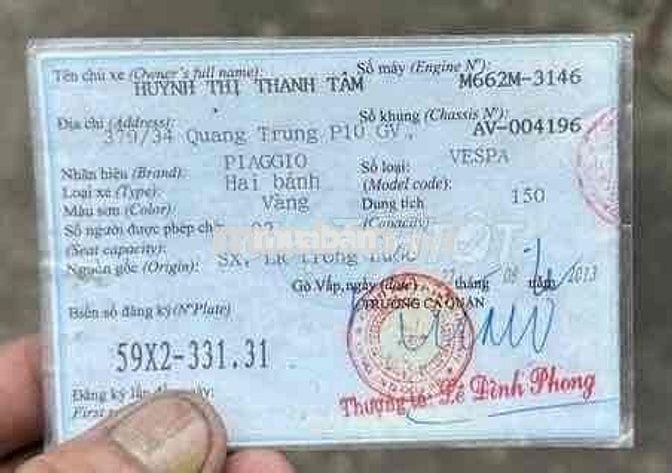 Tên chủ xe (Owner's full name): Số máy (Engine Nº): M662M-3146
HUỲNH THỊ THANH TÂM
Địa chỉ (Address): Số khung (Chassis Nº): AV-004196
379/34 Quang Trung P10 GV.
Nhãn hiệu (Brand): PIAGGIO Số loại: VESPA
Loại xe (Type): Hai bánh (Model code):
Màu sơn (Color): Vàng Dung tích 150
Số người được phép chở: 02 (Capacity)
(Seat capacity):
Nguồn gốc (Origin): SX, LR Trong nước
muaban
Gò Vấp, ngày (date) 27 tháng 08 năm 2013
Biển số đăng ký (Nº Plate) TRƯỞNG CA QUẬN
59X2-331.31
Đăng ký lần
First
Thượng tá: Lê Đình Phong